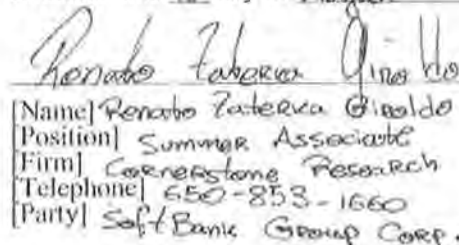 Renato Zaterka Giraldo
[Name] Renato Zaterka Giraldo
[Position] Summer Associate
[Firm] Cornerstone Research
[Telephone] 650-853-1660
[Party] SoftBank Group Corp.